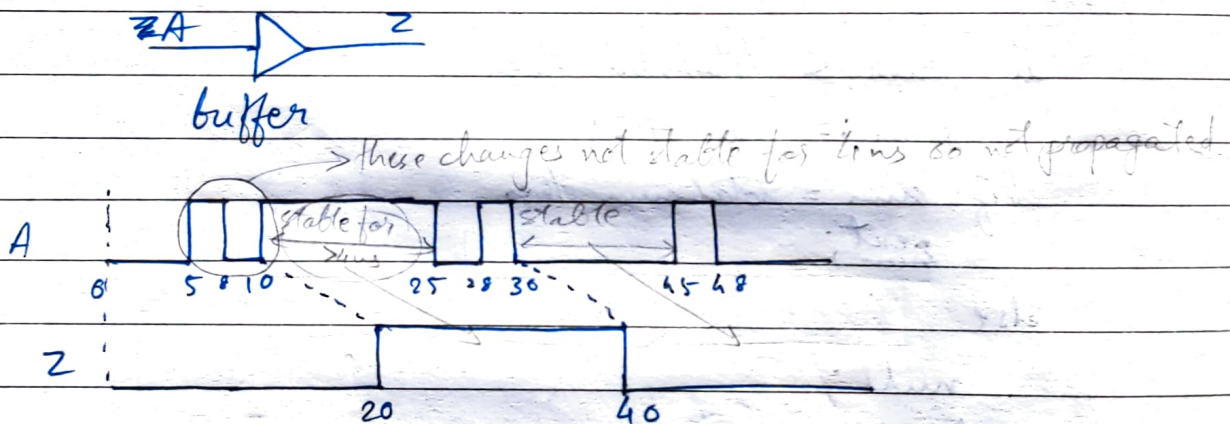 A Z
buffer
these changes not stable for 4ns so not propagated.
A stable for stable
>4ns
0 5 8 10 25 28 30 45 48
Z
20 40